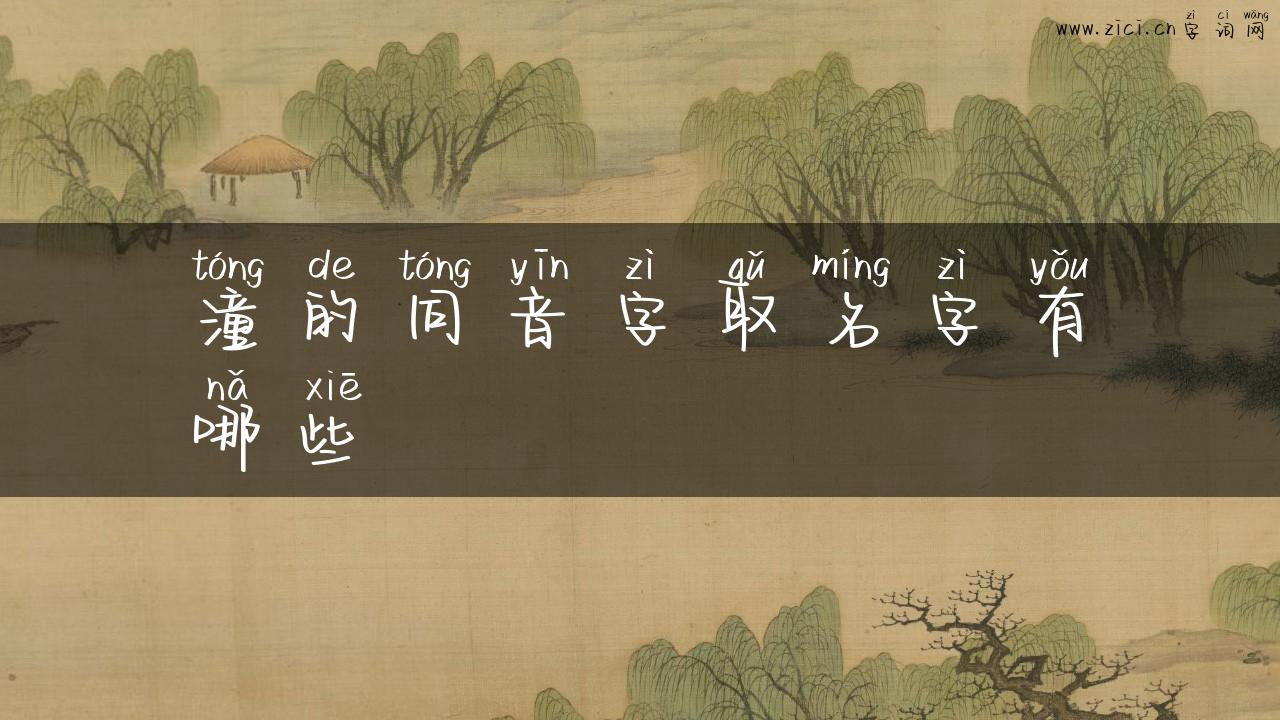 zì cí wǎng
www.zici.cn 字词网
tóng de tóng yīn zì qǔ míng zì yǒu
潼的同音字取名字有
nǎ xiē
哪些